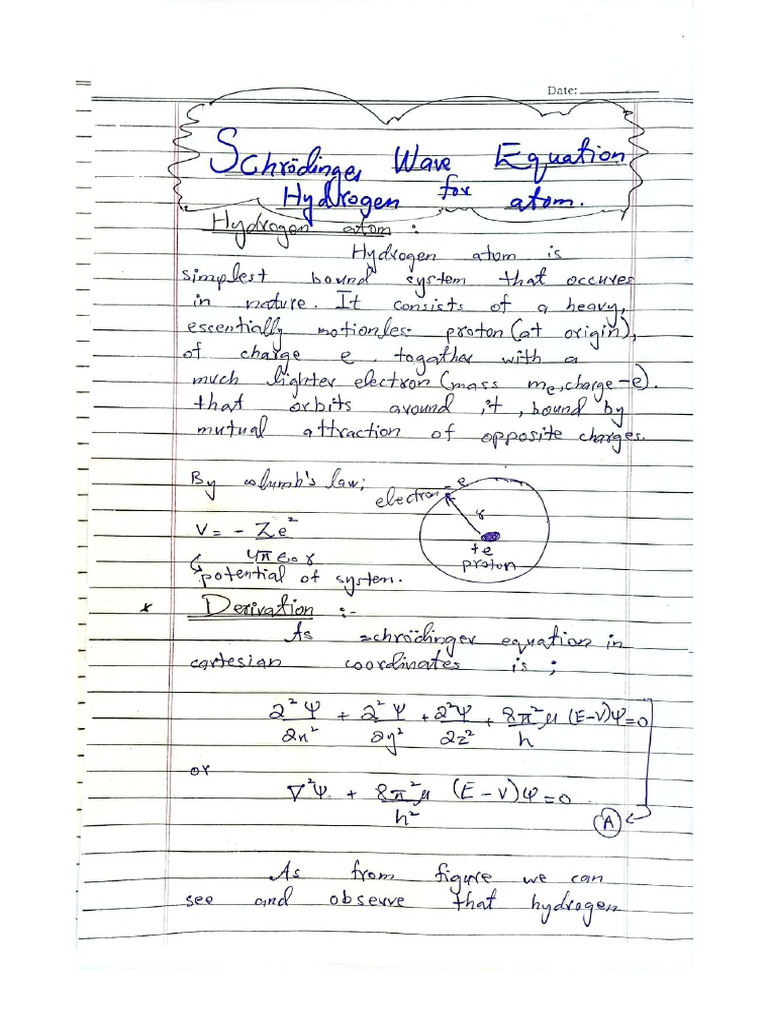 Date:
Schrödinger Wave Equation
for
Hydrogen atom.
Hydrogen atom :
Hydrogen atom is
simplest bound system that occures
in nature. It consists of a heavy,
escentially motionless proton (at origin),
of charge e togather with a
much lighter electron (mass me, charge -e).
that orbits around it, bound by
mutual attraction of opposite charges.
By columb's law;
V = - Ze²
4πε₀r
potential of system.
electron -e
r
+e
proton
* Derivation :-
As schrödinger equation in
cartesian coordinates is ;
∂²Ψ/∂x² + ∂²Ψ/∂y² + ∂²Ψ/∂z² + 8π²μ/h (E-V)Ψ=0
or
∇²Ψ + 8π²μ/h² (E-V)Ψ=0
(A)
As from figure we can
see and observe that hydrogen